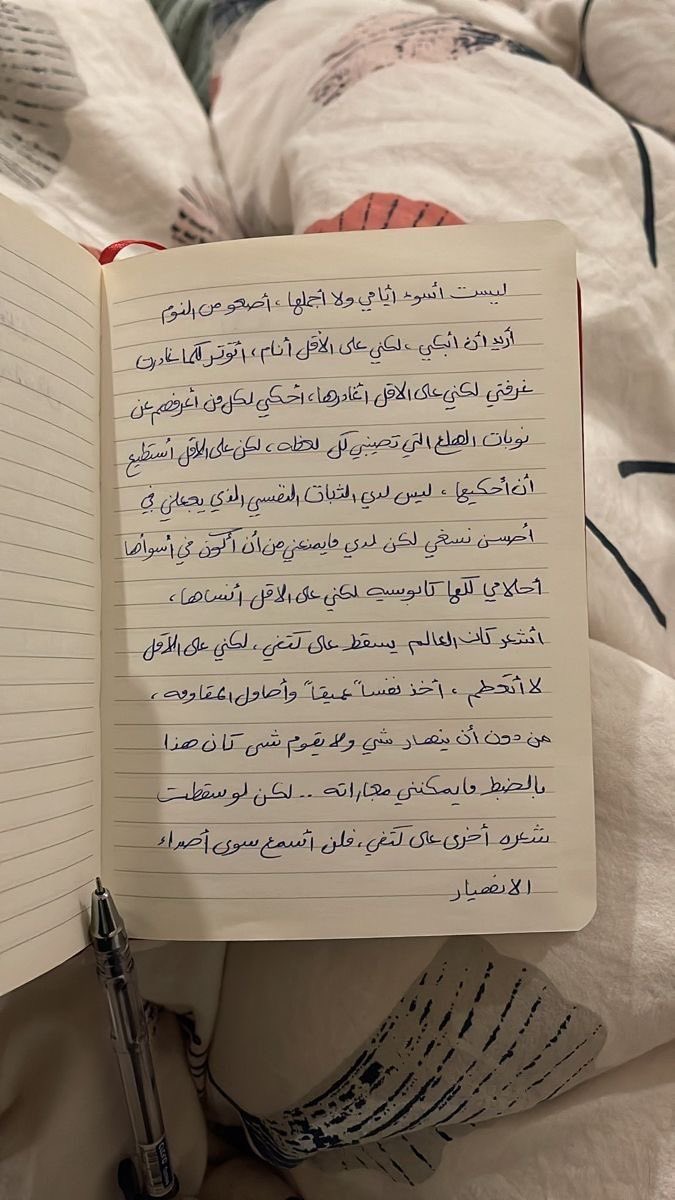 ليست أسوء أيامي ولا أجملها ، أصحو من النوم
أريد أن أبكي ، لكني على الأقل أنام ، أتوتر كلما غادرت
غرفتي لكني على الاقل أغادرها ، أحكي لكل من أعرفهم عن
نوبات الهلع التي تصيبني كل لحظه ، لكن على الاقل أستطيع
أن أحكيها ، ليس لدي الثبات النفسي الذي يجعلني في
أحسن نسخي لكن لدي مايمنعني من أن أكون في أسوأها
أحلامي كلها كابوسيه لكني على الاقل أنساها ،
أشعر كان العالم يسقط على كتفي ، لكني على الأقل
لا أتحطم ، أخذ نفساً عميقاً وأحاول المقاومه ،
من دون أن ينهار شي ولا يقوم شي كان هذا
بالضبط مايمكنني مجاراته .. لكن لو سقطت
شعره أخرى على كتفي ، فلن أسمع سوى أصداء
الانهيار